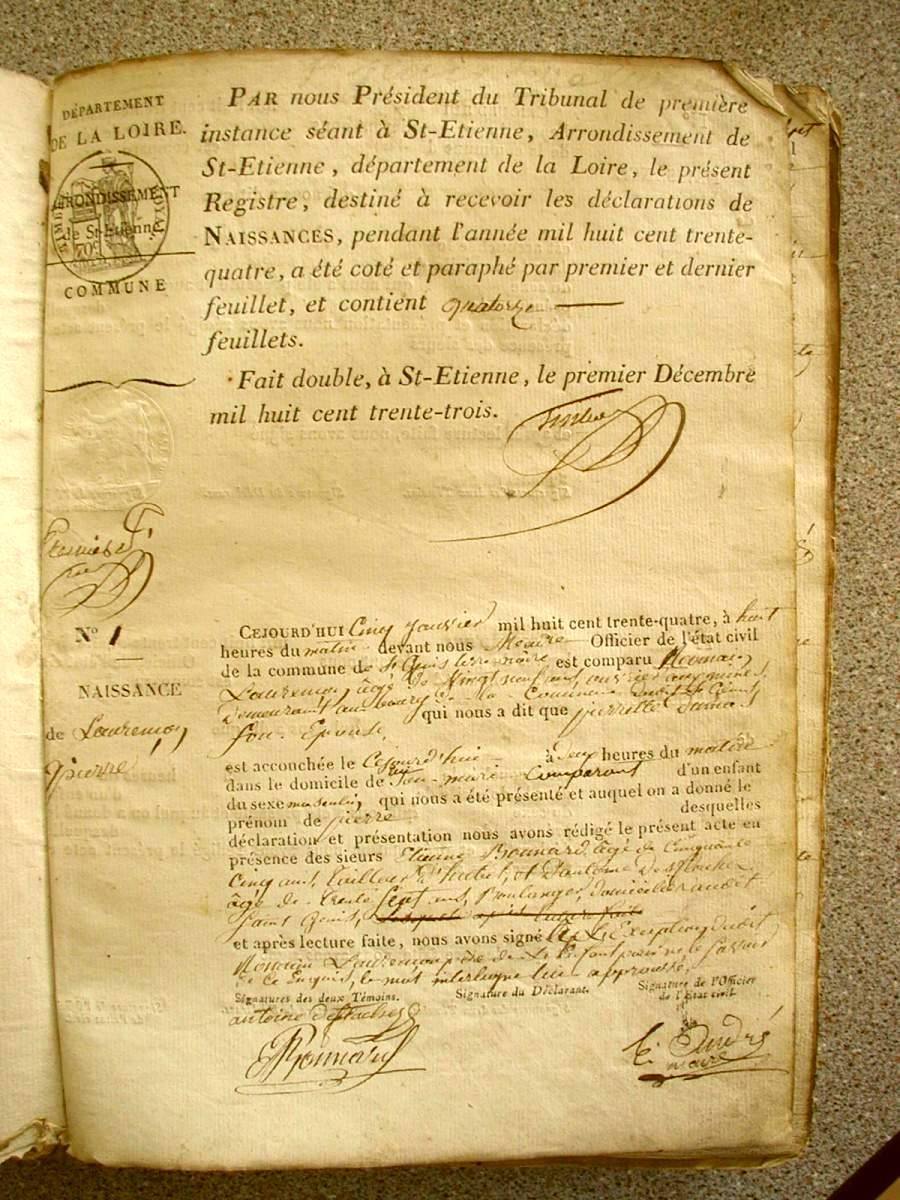 DÉPARTEMENT
DE LA LOIRE.
ARRONDISSEMENT
de St-Etienne
COMMUNE
PAR nous Président du Tribunal de première
instance séant à St-Etienne, Arrondissement de
St-Etienne, département de la Loire, le présent
Registre, destiné à recevoir les déclarations de
NAISSANCES, pendant l'année mil huit cent trente-
quatre, a été coté et paraphé par premier et dernier
feuillet, et contient quatorze
feuillets.
Fait double, à St-Etienne, le premier Décembre
mil huit cent trente-trois.
No 1
NAISSANCE
de Laurençon
pierre
CEJOURD'HUI Cinq janvier mil huit cent trente-quatre, à huit
heures du matin devant nous Maire Officier de l'état civil
de la commune de St Genis terre noire est comparu
Laurençon, âgé de Vingt neuf ans,
Demeurant au bourg de la Commune dudit St Genis
qui nous a dit que pierrette
son Epouse,
est accouchée le Cejourd'hui à Deux heures du matin
dans le domicile de son mari Comparant d'un enfant
du sexe masculin, qui nous a été présenté et auquel on a donné le
prénom de pierre desquelles
déclaration et présentation nous avons rédigé le présent acte en
présence des sieurs Etienne Bonnard, âgé de Cinquante
Cinq ans, tailleur d'habit, et Antoine Desflaches
âgé de trente Sept ans, Boulanger, domiciliés audit
Saint Genis,
et après lecture faite, nous avons signé à l'Exception dudit
Laurençon père de l'Enfant pour ne le savoir
de ce Enquis, le mot interligne lui approuvé,
Signatures des deux Témoins. Signature du Déclarant. Signature de l'Officier
de l'état civil
antoine desflaches
Bonnard
André
maire